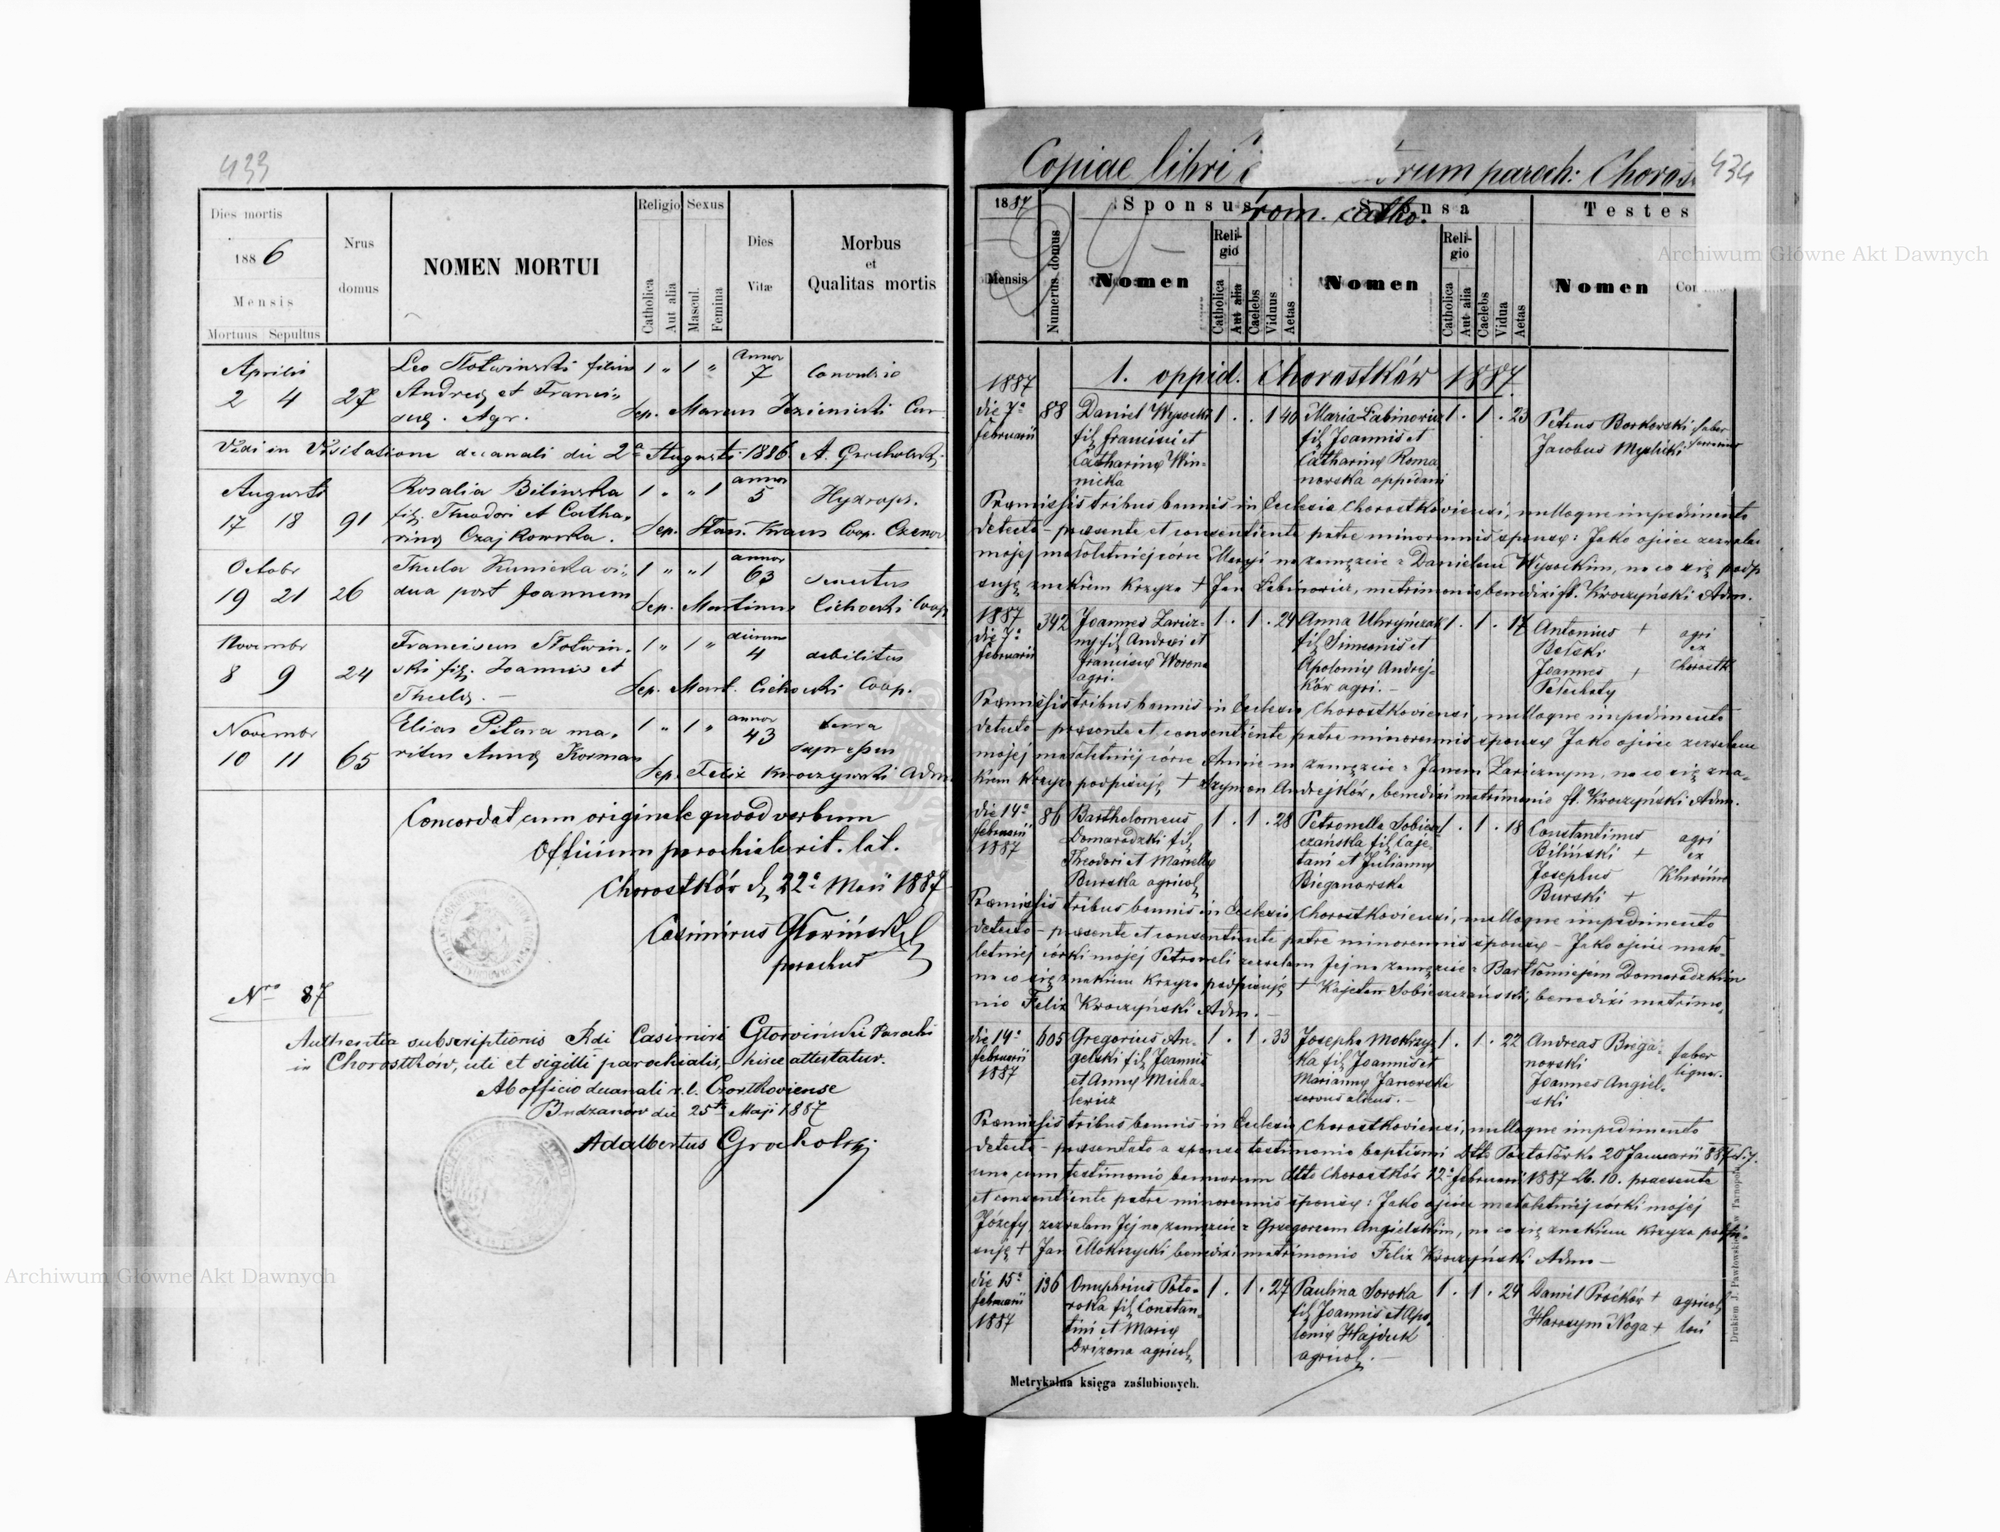 433
Dies mortis
1886
Mensis
Mortuus Sepultus
Nrus
domus
NOMEN MORTUI
Religio
Catholica
Aut alia
Sexus
Mascul.
Femina
Dies
Vitæ
Morbus
et
Qualitas mortis
Aprilis
2 4 27
Leo Slotwinski filius
Andreę et Franci-
scę. Agr.
1 " 1 "
annor
7
Convulsio
Sep. Marcus Cur.
Vidi in Visitatione decanali die 2a Augusti 1886. A. Grocholski
Augusti
17 18 91
Rosalia Bilinska
filę. Theodori et Catha-
rinę Czajkowska.
1 " " 1
annor
5
Hydrops.
Sep. Stan. Kraus Coop. Czernov
Octobr
19 21 26
Thecla Kunicka vi-
dua post Joannem
1 " " 1
annor
63
senectus
Sep. Martinus Cichocki Coop
Novembr
8 9 24
Franciscus Slotwin-
ski filę. Joannis et
Theclę. —
1 " 1 "
dierum
4
debilitas
Sep. Mart. Cichocki Coop.
Novembr
10 11 65
Elias Pitura ma-
ritus Annę Korman
1 " 1 "
annor
43
terra
supressus
Sep. Felix Kroczynski Adm
Concordat cum originale quoad verbum
Officium parochiale rit. lat.
Chorostków d. 22a Maii 1887
Casimirus Głowiński
parochus
Nro 87
Authentia subscriptionis Rdi Casimiri Głowiński Parochi
in Chorostków, uti et sigilli parochialis, hisce attestatur.
Ab officio decanali r. l. Czortkoviense
Budzanów die 25ta Maji 1887
Adalbertus Grocholski
Copiae libri rum paroch: Choros
434
rom. catho.
1887
Mensis
Numerus domus
Sponsus
Nomen
Reli-
gio
Catholica
Aut alia
Caelebs
Viduus
Aetas
Sponsa
Nomen
Reli-
gio
Catholica
Aut alia
Caelebs
Vidua
Aetas
Testes
Nomen
1. oppid. Chorostków 1887
1887
die 7a
februarii
88
Daniel Wysocki
filę francisci et
Catharinę Win-
nicka
1 . . 1 40
Maria Łabinowicz
filę Joannis et
Catharinę Roma
nowska oppidani
1 . 1 . 23
Petrus Borkowski faber
Jacobus Myslicki
Præmissis tribus bannis in Ecclesia Chorostkoviensi, nulloque impedimento
detecto – præsente et consentiente patre minorennis sponsę: Jako ojciec zezwalam
mojej małoletniej córce Maryi na zamęzcie z Danielem Wysockim, na co się podp
suję znakiem krzyża + Jan Łabinowicz, matrimonio benedixi ft. Kroczyński Adm.
1887
die 7a
februarii
342
Joannes Zaricz-
ny filę Andreæ et
franciscę Worona
agri.
1 . 1 . 24
Anna Uhryńczak
filę Simeonis et
Apolonię Andrej-
ków agri. —
1 . 1 . 17
Antonius +
Belski
Joannes +
Pełechaty
agri
ex
Chorostk
Præmissis tribus bannis in Ecclesia Chorostkoviensi, nulloque impedimento
detecto – præsente et consentiente patre minorennis sponsę Jako ojciec zezwalam
mojej małoletniej córce Annie na zamęzcie z Janem Zaricznym, na co się zna-
kiem krzyża podpisuję + Szymon Andrejków, benedixi matrimonio ft. Kroczyński Adm.
die 14a
februarii
1887
86
Bartholomeus
Domaradzki filę
Theodori et Marcellę
Burska agricolę
1 . 1 . 28
Petronella Sobiesz
czańska filę Caje-
tani et Juliannę
Bieganowska
1 . 1 . 18
Constantinus
Biliński +
Josephus
Burski +
agri
ex
Præmissis tribus bannis in Ecclesia Chorostkoviensi, nulloque impedimento
detecto – præsente et consentiente patre minorennis sponsę – Jako ojciec mało-
letniej córki mojej Petroneli zezwalam Jej na zamęzcie z Bartłomiejem Domaradzkim
na co się znakiem krzyża podpisuję + Kajetan Sobieszczański, benedixi matrimo-
nio Felix Kroczyński Adm. —
die 14a
februarii
1887
605
Gregorius An-
gelski filę Joannis
et Annę Micha-
lewicz
1 . 1 . 33
Josepha Mokrzy-
ka filę Joannis et
Mariannę Janowska
1 . 1 . 22
Andreas Biega-
nowski
Joannes Angiel-
ski
faber
lignar.
Præmissis tribus bannis in Ecclesia Chorostkoviensi, nulloque impedimento
detecto – præsentato a sponso testimonio baptismi dtto Postołówka 20 Januarii 887
una cum testimonio bannorum dtto Chorostków 12a februarii 1887 Lb. 10. praesente
et consentiente patre minorennis sponsę: Jako ojciec małoletniej córki mojej
Józefy zezwalam Jej na zamęzcie z Grzegorzem Angielskim, na co się znakiem krzyża podpi-
suję + Jan Mokrzycki benedixi matrimonio Felix Kroczyński Adm —
die 15a
februarii
1887
136
Onuphrius Poto-
roka filę Constan-
tini et Marię
Drizona agricolę
1 . 1 . 27
Paulina Soroka
filę Joannis et Apo-
lonię Hajduk
agricol. —
1 . 1 . 24
Daniel Proćków +
Harasym Noga +
agricol
Metrykalna księga zaślubionych.
Drukiem J. Pawłowskiego w Tarnopolu
Archiwum Główne Akt Dawnych
Archiwum Główne Akt Dawnych